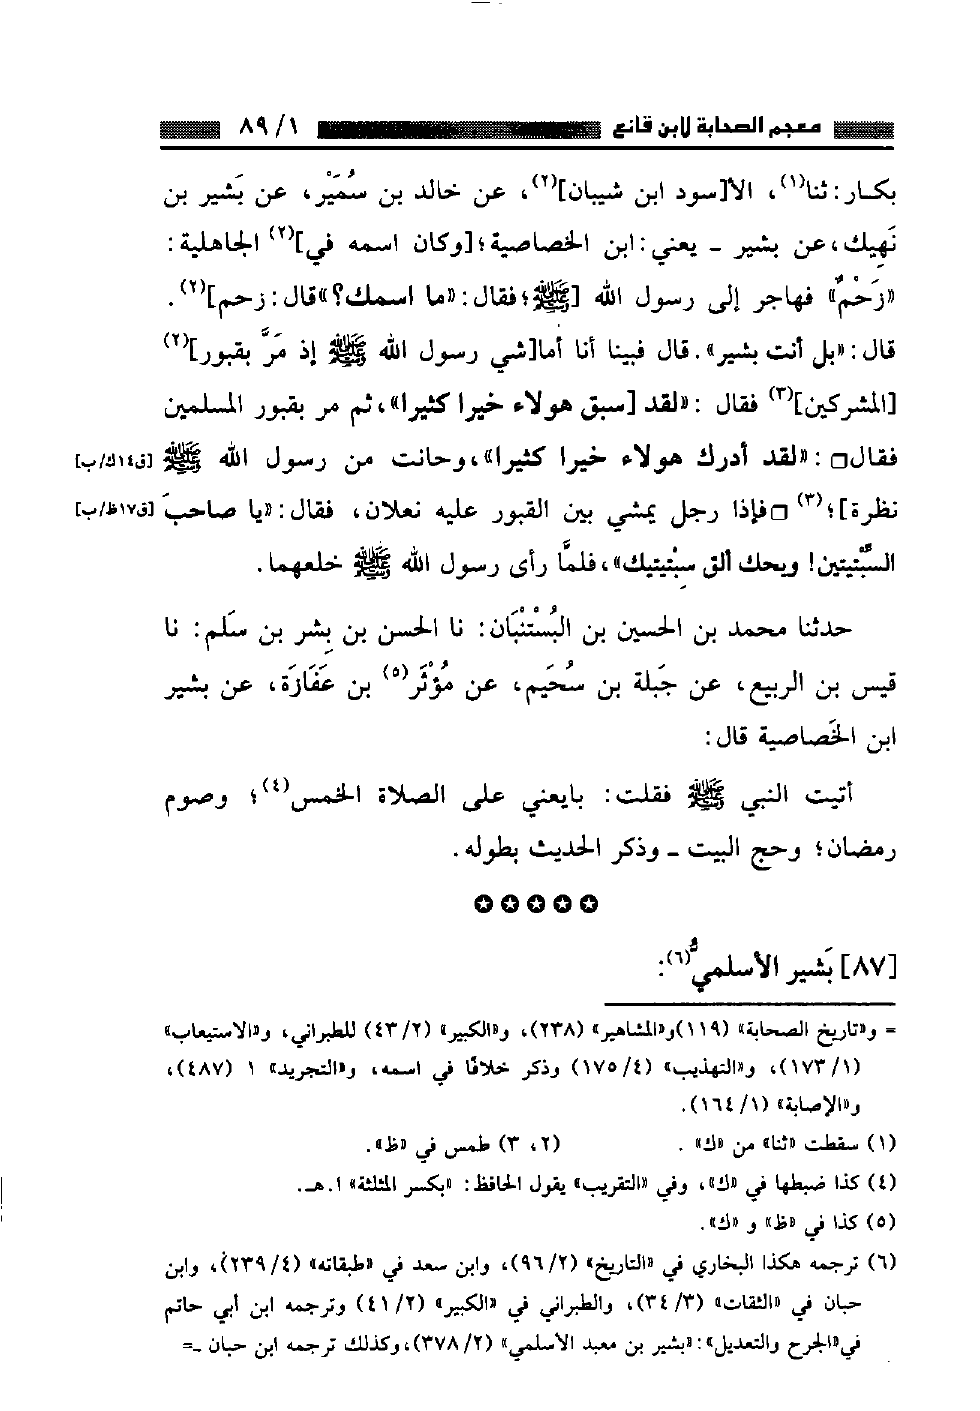 معجم الصحابة لابن قانع ٨٩/١
بكار: ثنا(١)، الأ[سود ابن شيبان](٢)، عن خالد بن سُمَيْر، عن بَشير بن
نَهِيك، عن بشير ـ يعني: ابن الخصاصية؛ [وكان اسمه في](٢) الجاهلية:
«زَحْمٌ» فهاجر إلى رسول الله [ﷺ؛ فقال: «ما اسمك؟» قال: زحم](٢).
قال: «بل أنت بشير». قال فبينا أنا أما[شي رسول الله ﷺ إذ مَرَّ بقبور](٢)
[المشركين](٣) فقال: «لقد [سبق هولاء خيرا كثيرا»، ثم مر بقبور المسلمين
فقال□: «لقد أدرك هولاء خيرا كثيرا»، وحانت من رسول الله ﷺ [ق١٤ك/ب]
نظرة]؛(٣) □فإذا رجل يمشي بين القبور عليه نعلان، فقال: «يا صاحبَ [ق١٧ظ/ب]
السِّبْتيتين! ويحك ألق سِبْتيتيك»، فلمَّا رأى رسول الله ﷺ خلعهما.
حدثنا محمد بن الحسين بن البُسْتَنْبَان: نا الحسن بن بِشر بن سَلم: نا
قيس بن الربيع، عن جَبلة بن سُحَيم، عن مُؤْثَر(٥) بن عَفَازَة، عن بشير
ابن الخَصاصية قال:
أتيت النبي ﷺ فقلت: بايعني على الصلاة الخمس(٤)؛ وصوم
رمضان؛ وحج البيت ـ وذكر الحديث بطوله.
[٨٧] بَشير الأسلميُّ(٦):
= و«تاريخ الصحابة» (١١٩) و«المشاهير» (٢٣٨)، و«الكبير» (٤٣/٢) للطبراني، و«الاستيعاب»
(١٧٣/١)، و«التهذيب» (١٧٥/٤) وذكر خلافًا في اسمه، و«التجريد» ١ (٤٨٧)،
و«الإصابة» (١٦٤/١).
(١) سقطت «ثنا» من «ك». (٢، ٣) طمس في «ظ».
(٤) كذا ضبطها في «ك»، وفي «التقريب» يقول الحافظ: «بكسر المثلثة» ا.هـ.
(٥) كذا في «ظ» و «ك».
(٦) ترجمه هكذا البخاري في «التاريخ» (٩٦/٢)، وابن سعد في «طبقاته» (٢٣٩/٤)، وابن
حبان في «الثقات» (٣٤/٣)، والطبراني في «الكبير» (٤١/٢) وترجمه ابن أبي حاتم
في «الجرح والتعديل»: «بشير بن معبد الأسلمي» (٣٧٨/٢)، وكذلك ترجمه ابن حبان ـ=